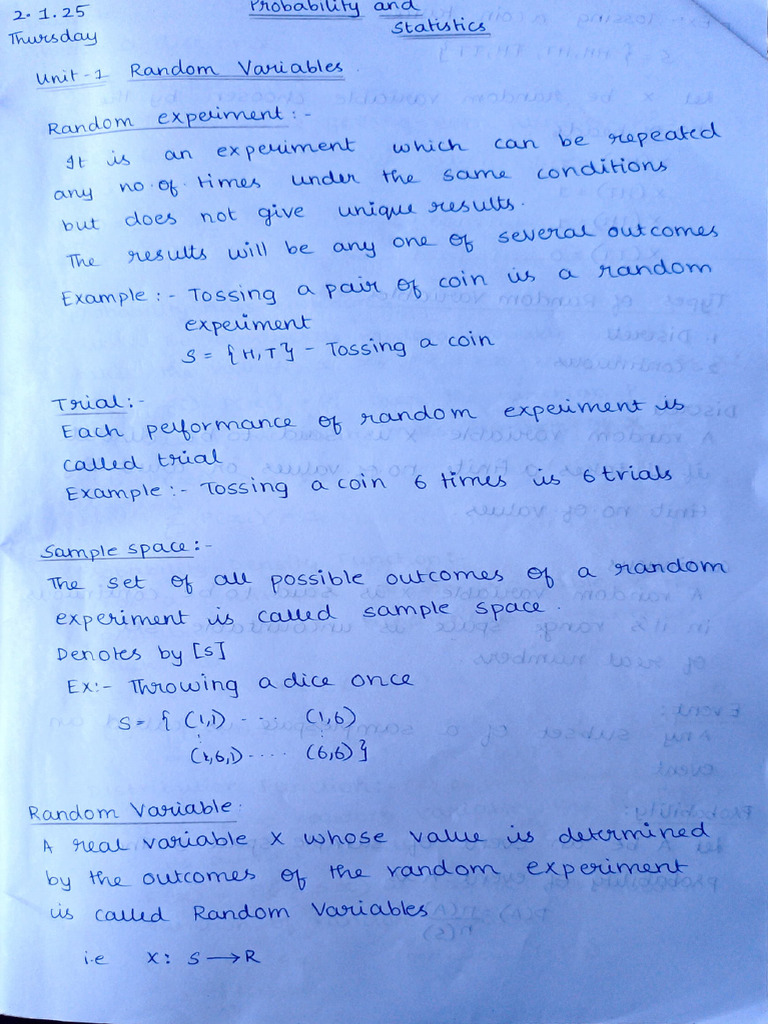 2.1.25
Probability and
Thursday
Statistics
Unit-1 Random Variables
Random experiment:-
It is an experiment which can be repeated
any no.of. times under the same conditions
but does not give unique results.
The results will be any one of several outcomes
Example:- Tossing a pair of coin is a random
experiment
S = {H,T} - Tossing a coin
Trial:-
Each performance of random experiment is
called trial
Example:- Tossing a coin 6 times is 6 trials
Sample space:-
The set of all possible outcomes of a random
experiment is called sample space.
Denotes by [S]
Ex:- Throwing a dice once
S = { (1,1) ..... (1,6)
..... (6,6) }
Random Variable:
A real variable X whose value is determined
by the outcomes of the random experiment
is called Random Variables
i.e X: S → R